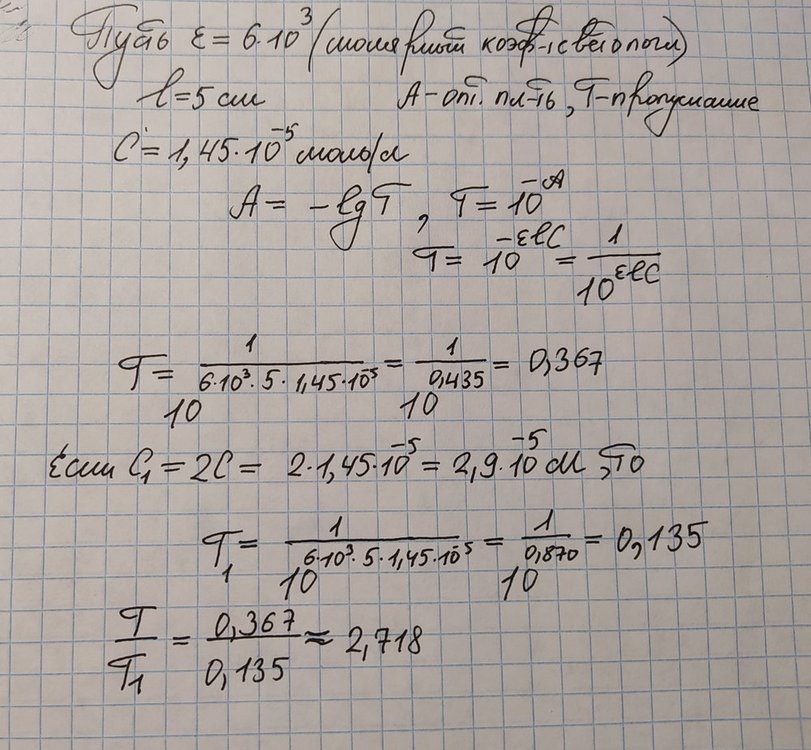 Пусть ε = 6·10³ (молярный коэф-т светопогл)
l = 5 см A - опт. пл-ть, T - пропускание
C = 1,45·10⁻⁵ моль/л
A = -lgT, T = 10^-A
T = 10^-εlC = 1/10^εlC
T = 1/10^6·10³·5·1,45·10⁻⁵ = 1/10^0,435 = 0,367
Если C₁ = 2C = 2·1,45·10⁻⁵ = 2,9·10⁻⁵ М, то
T₁ = 1/10^6·10³·5·1,45·10⁻⁵ = 1/10^0,870 = 0,135
T/T₁ = 0,367/0,135 ≈ 2,718